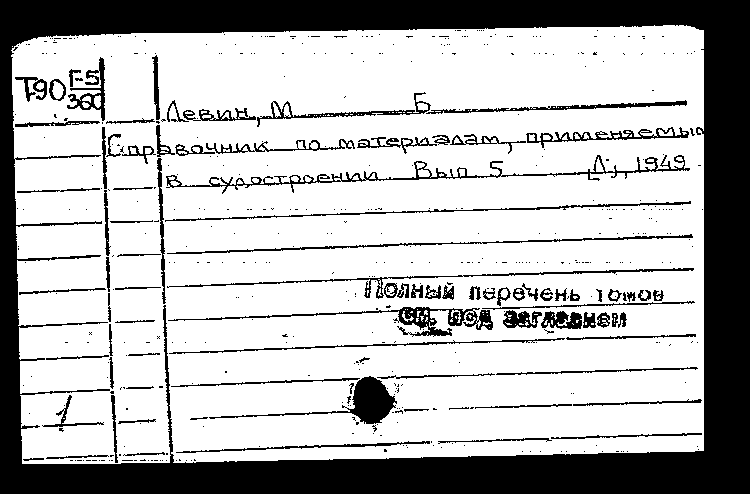 Т90 Г-5
360
Левин, М Б
Справочник по материалам, применяемым
в судостроении Вып 5 [Л.], 1949
Полный перечень томов
см. под заглавием
1